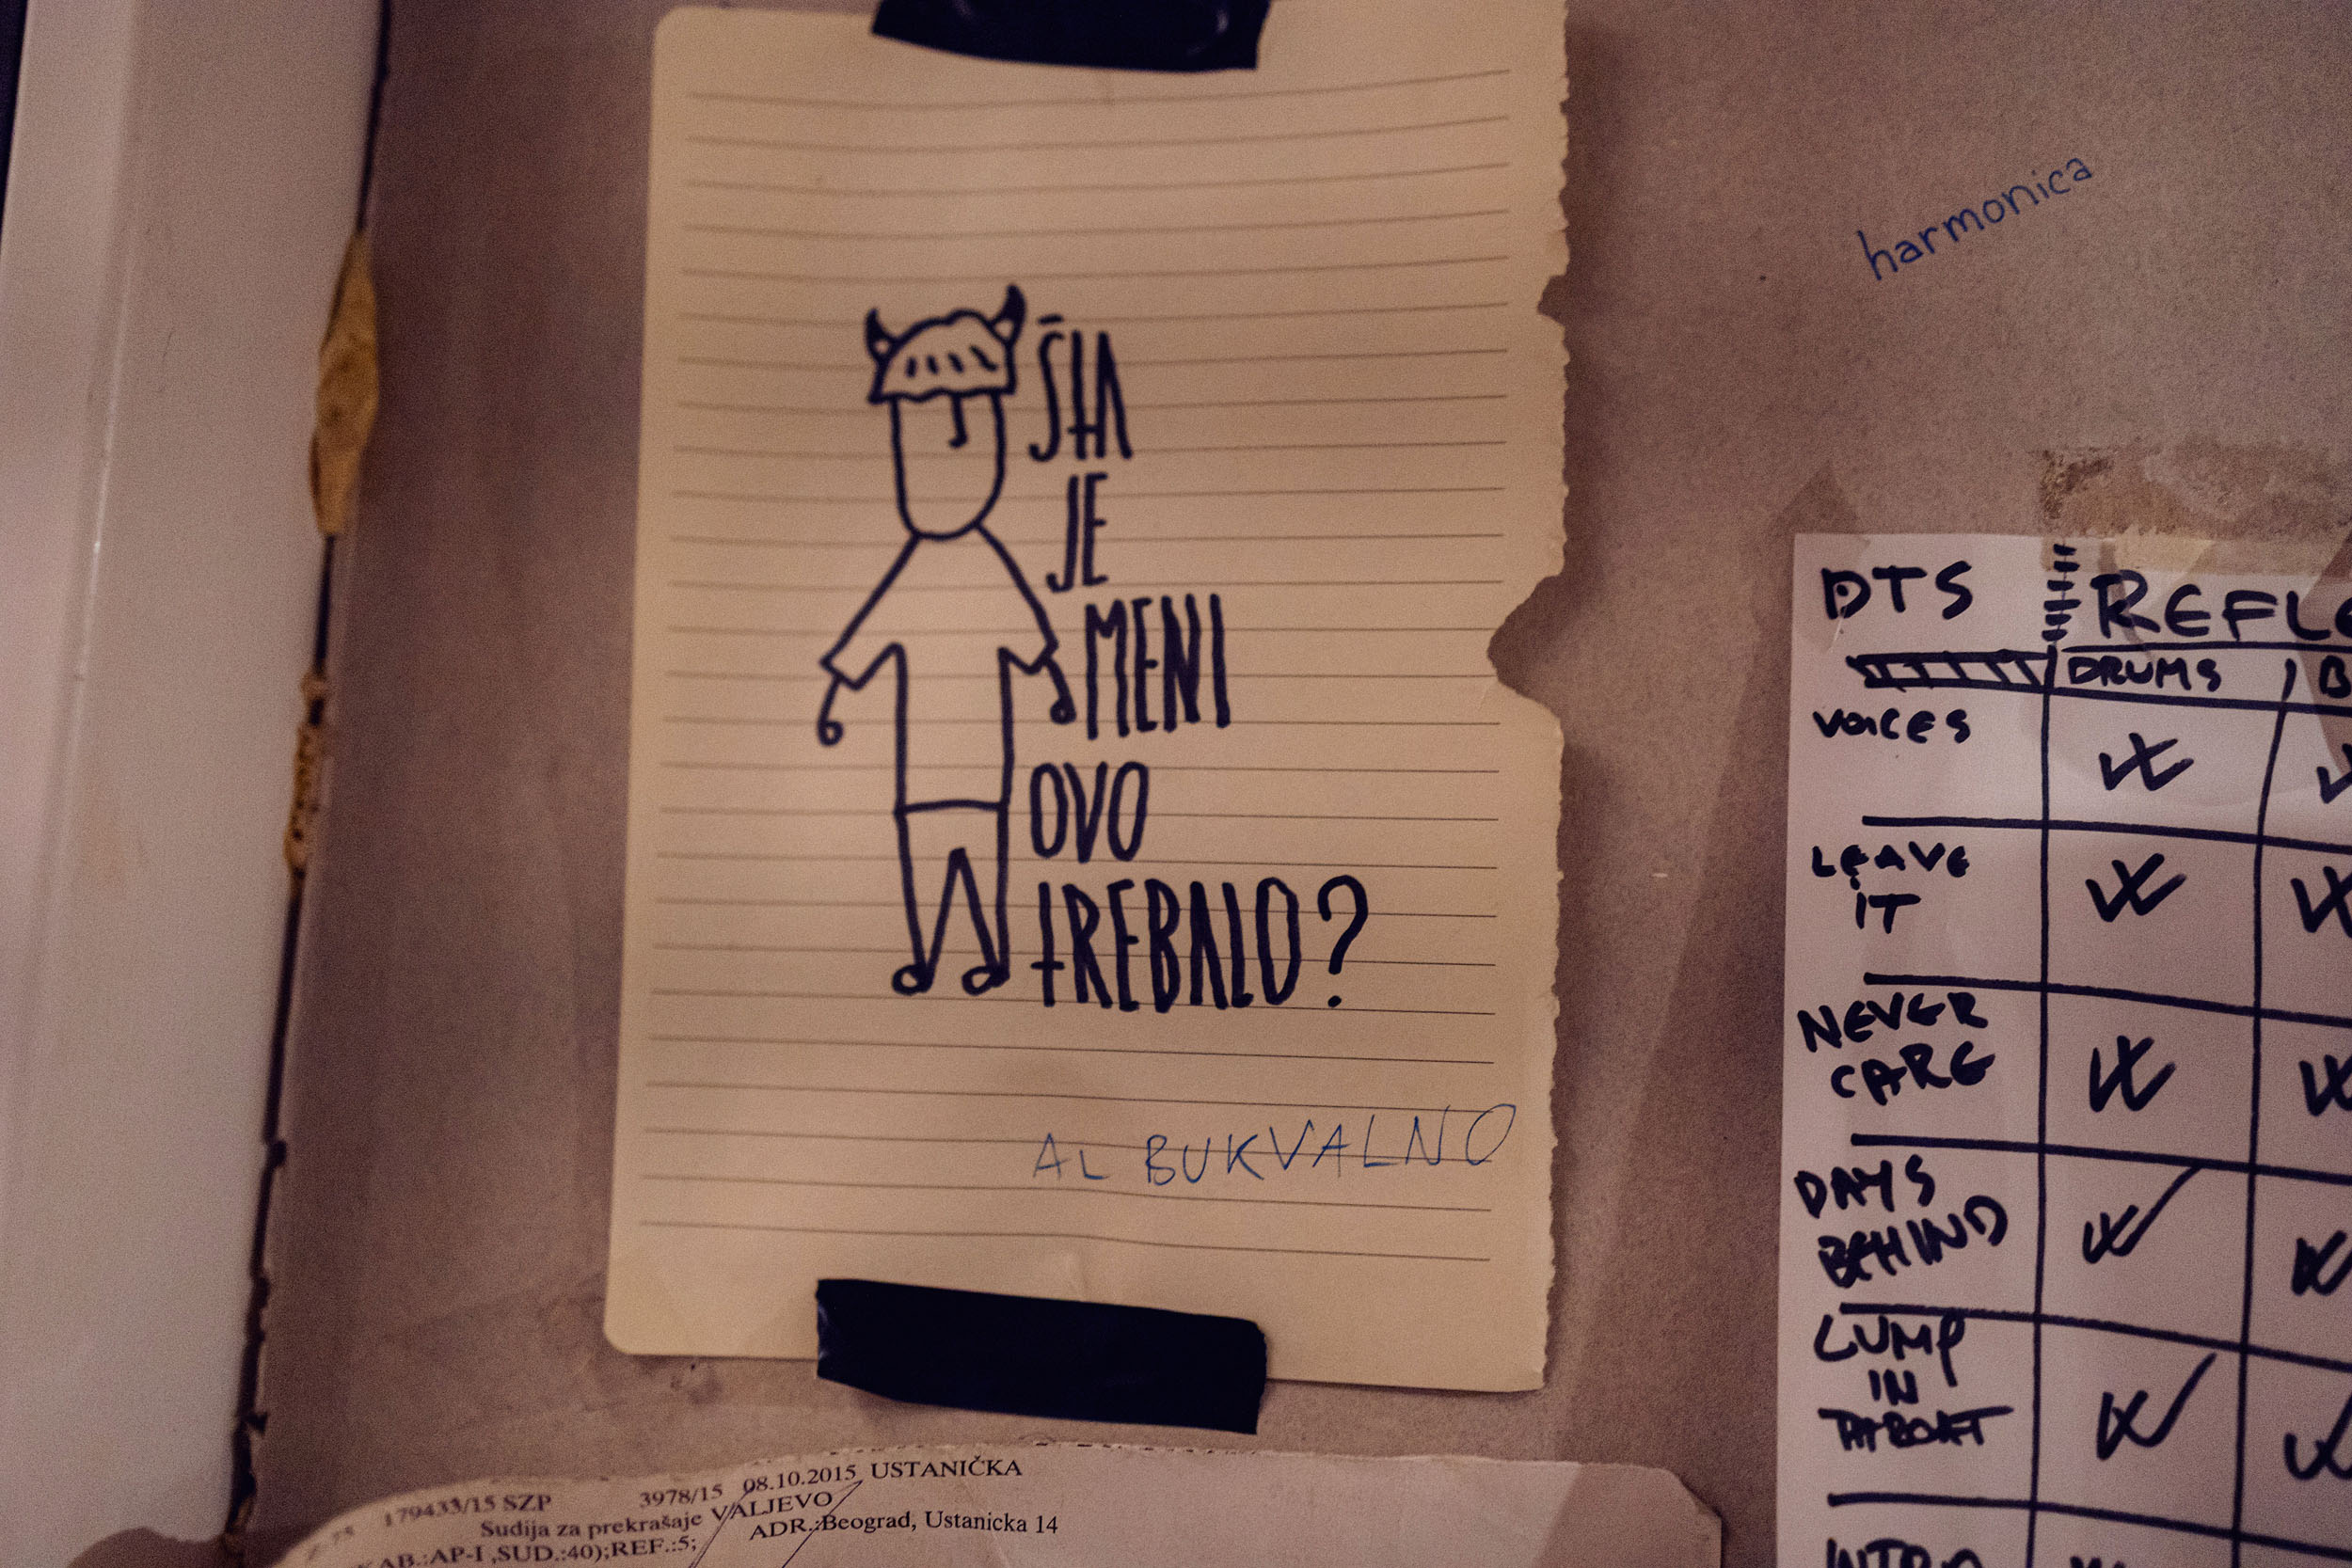 ŠTA
JE
MENI
OVO
TREBALO?
AL BUKVALNO
harmonica
DTS
DRUMS
VOICES
LEAVE
IT
NEVER
CARE
DAYS
BEHIND
LUMP
IN
THROAT
179433/15 SZP 3978/15 08.10.2015 USTANIČKA
Sudija za prekršaje VALJEVO
ADR.:Beograd, Ustanicka 14
AB.:AP-I ,SUD.:40);REF.:5;